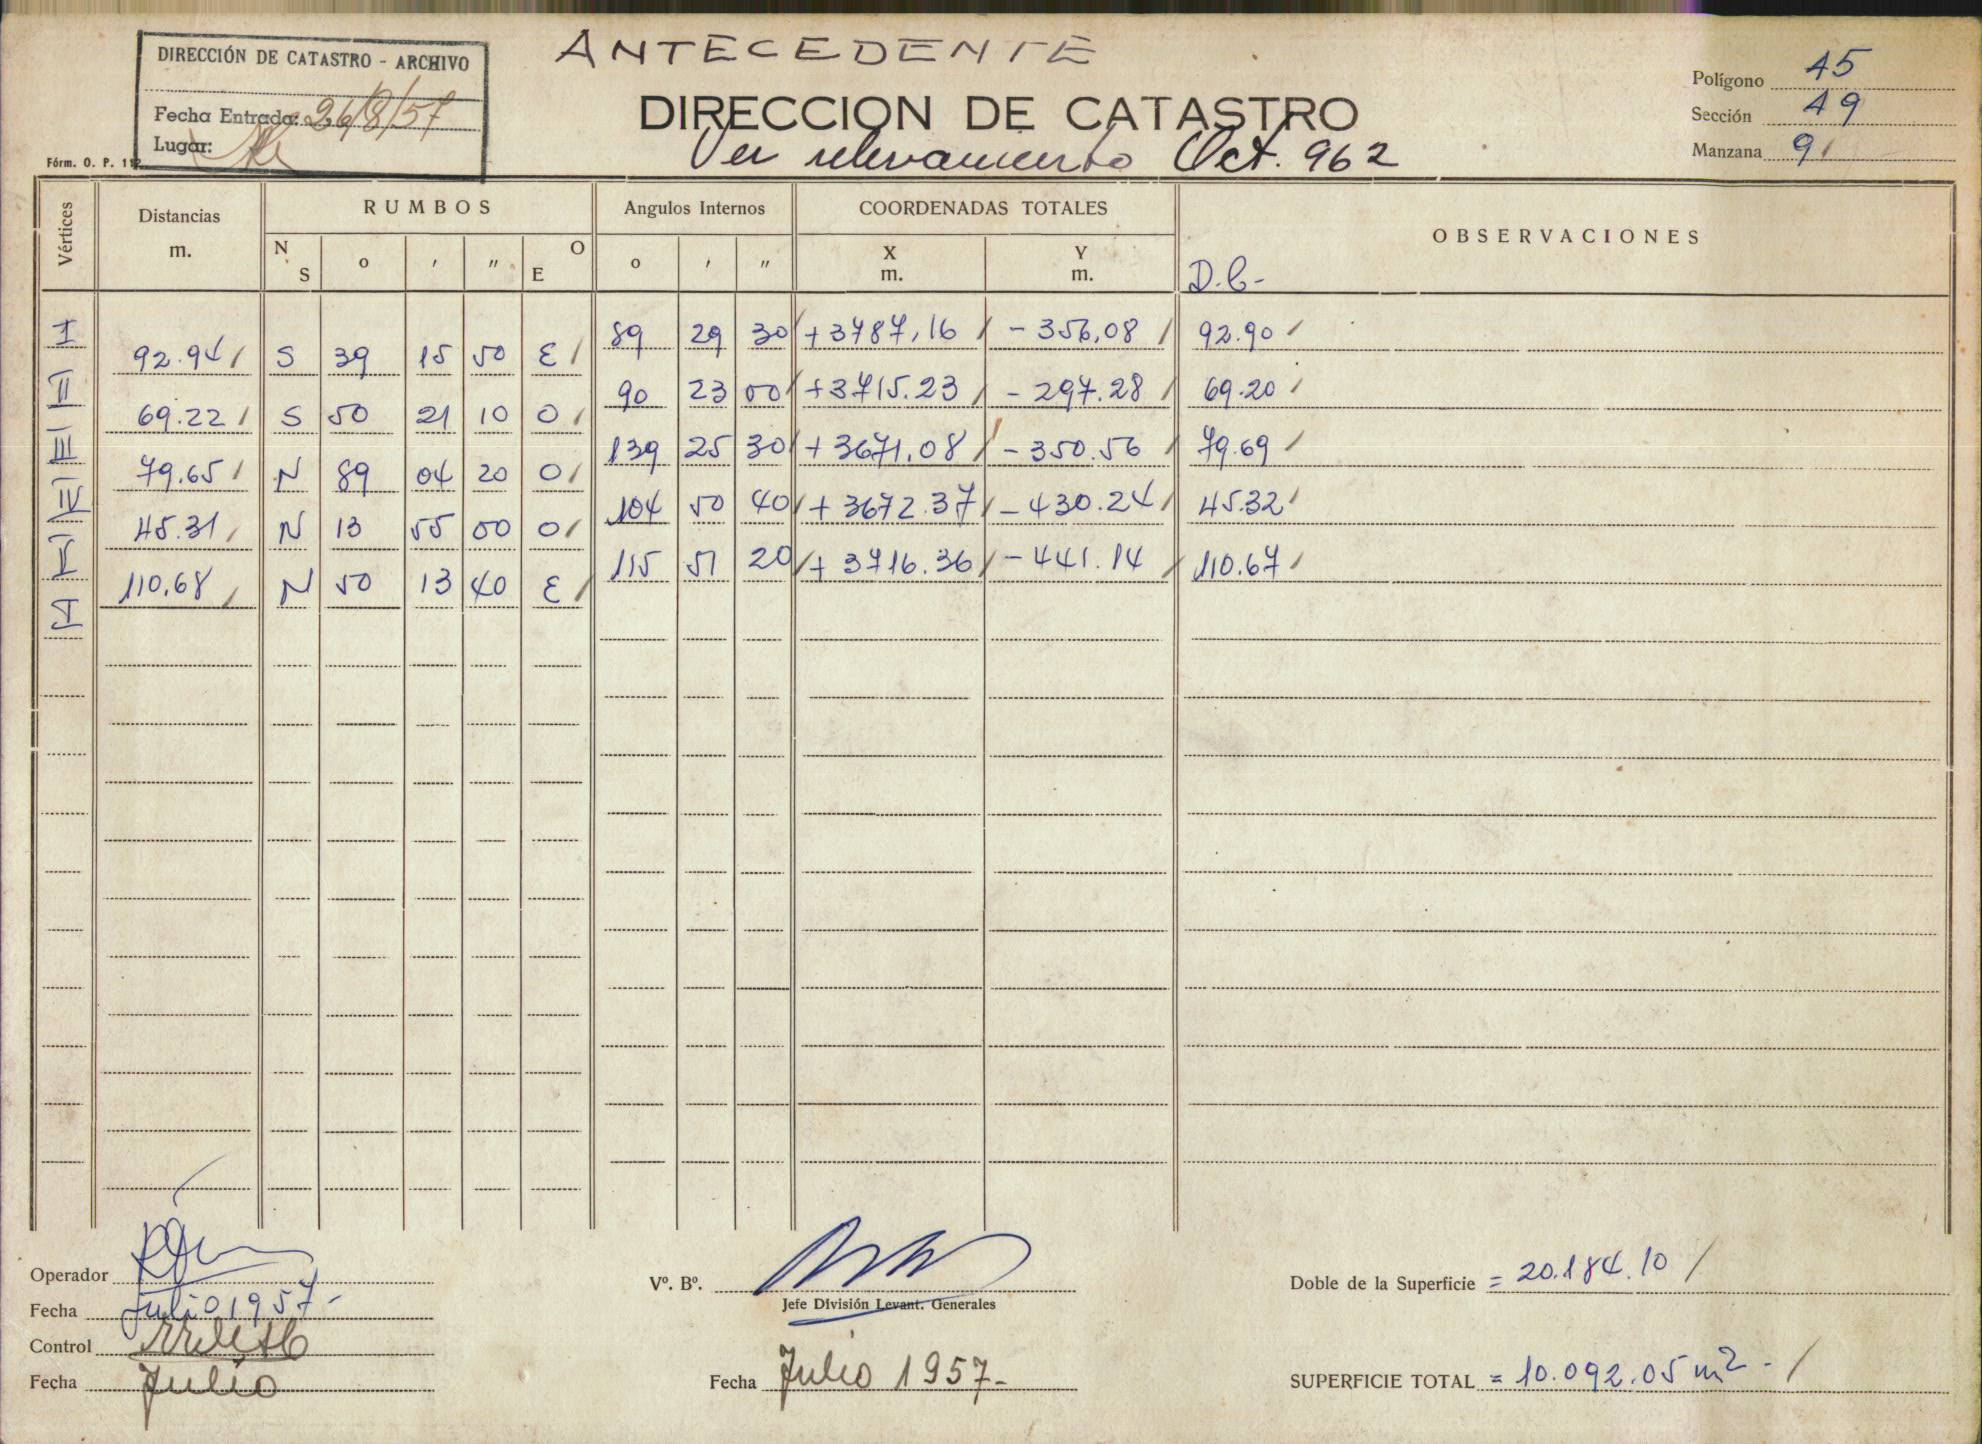 ANTECEDENTE
DIRECCIÓN DE CATASTRO - ARCHIVO
Fecha Entrada: 26/8/57
Lugar:
Fórm. O. P. 112
DIRECCION DE CATASTRO
Ver relevamiento Oct. 962
Polígono 45
Sección 49
Manzana 9
Vértices Distancias m. RUMBOS Angulos Internos COORDENADAS TOTALES OBSERVACIONES
N S o ' " O E o ' " X m. Y m. D.C.-
I 89 29 30 +3787,16 -356,08 92.90
92.94 S 39 15 50 E
II 90 23 00 +3715.23 -297.28 69.20
69.22 S 50 21 10 O
III 139 25 30 +3671,08 -350.56 79.69
79.65 N 89 04 20 O
IV 104 50 40 +3672.37 -430.24 45.32
45.31 N 13 55 00 O
V 115 51 20 +3716.36 -441.14 110.67
110,68 N 50 13 40 E
I
Operador
Fecha Julio 1957-
Control
Fecha Julio
Vº. Bº.
Jefe División Levant. Generales
Fecha Julio 1957-
Doble de la Superficie = 20.184.10
SUPERFICIE TOTAL = 10.092.05 m2 -